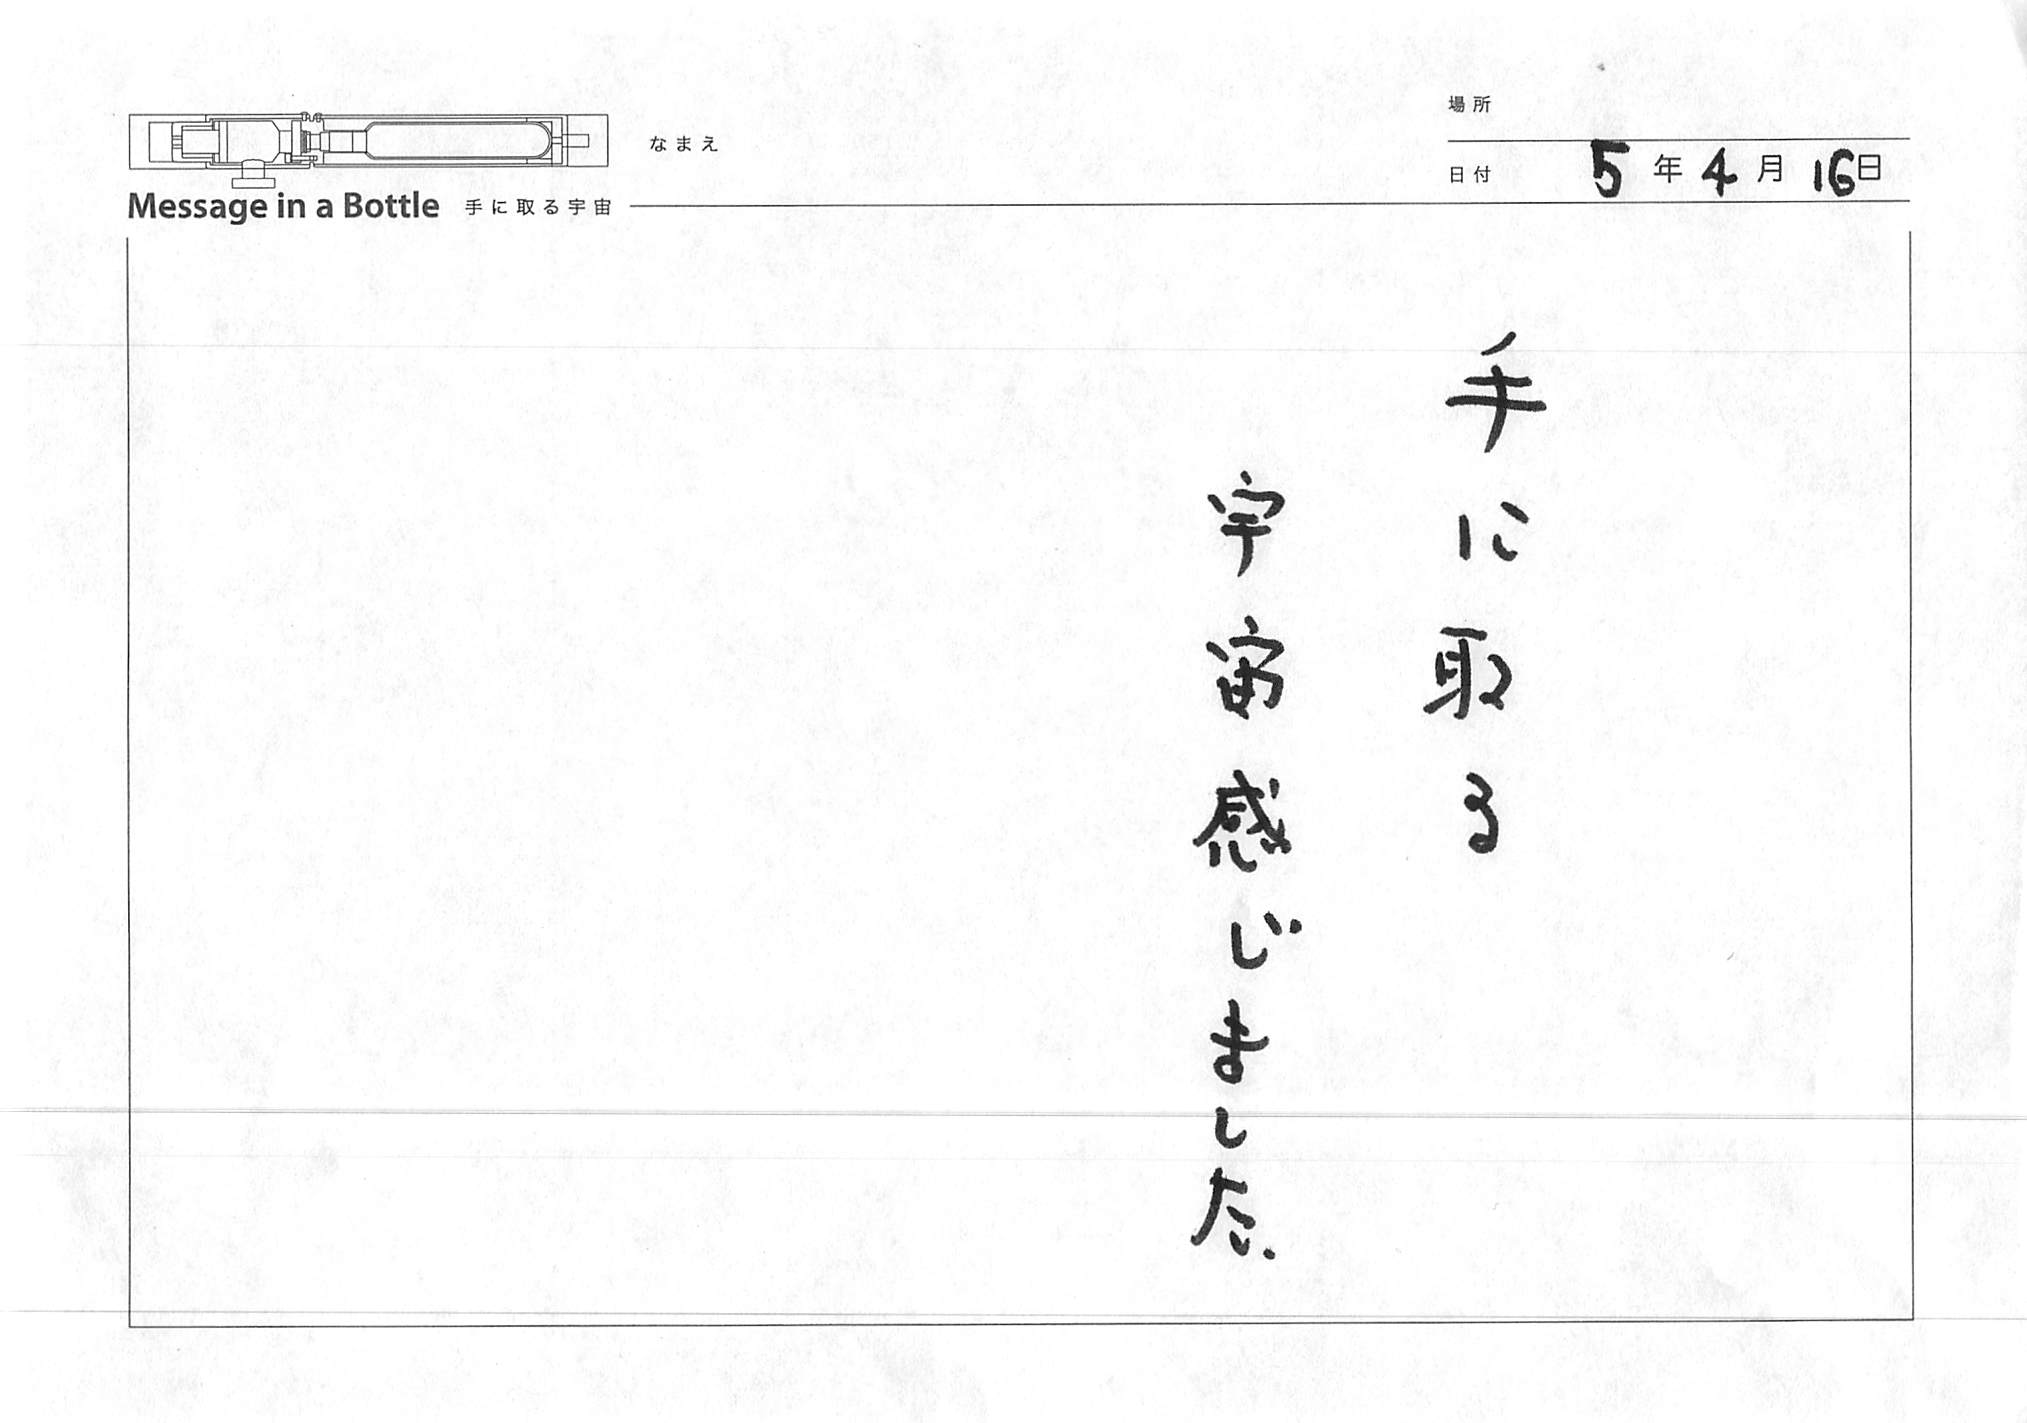 場所
なまえ
日付 5年4月16日
Message in a Bottle 手に取る宇宙
手に取る
宇宙感じました.